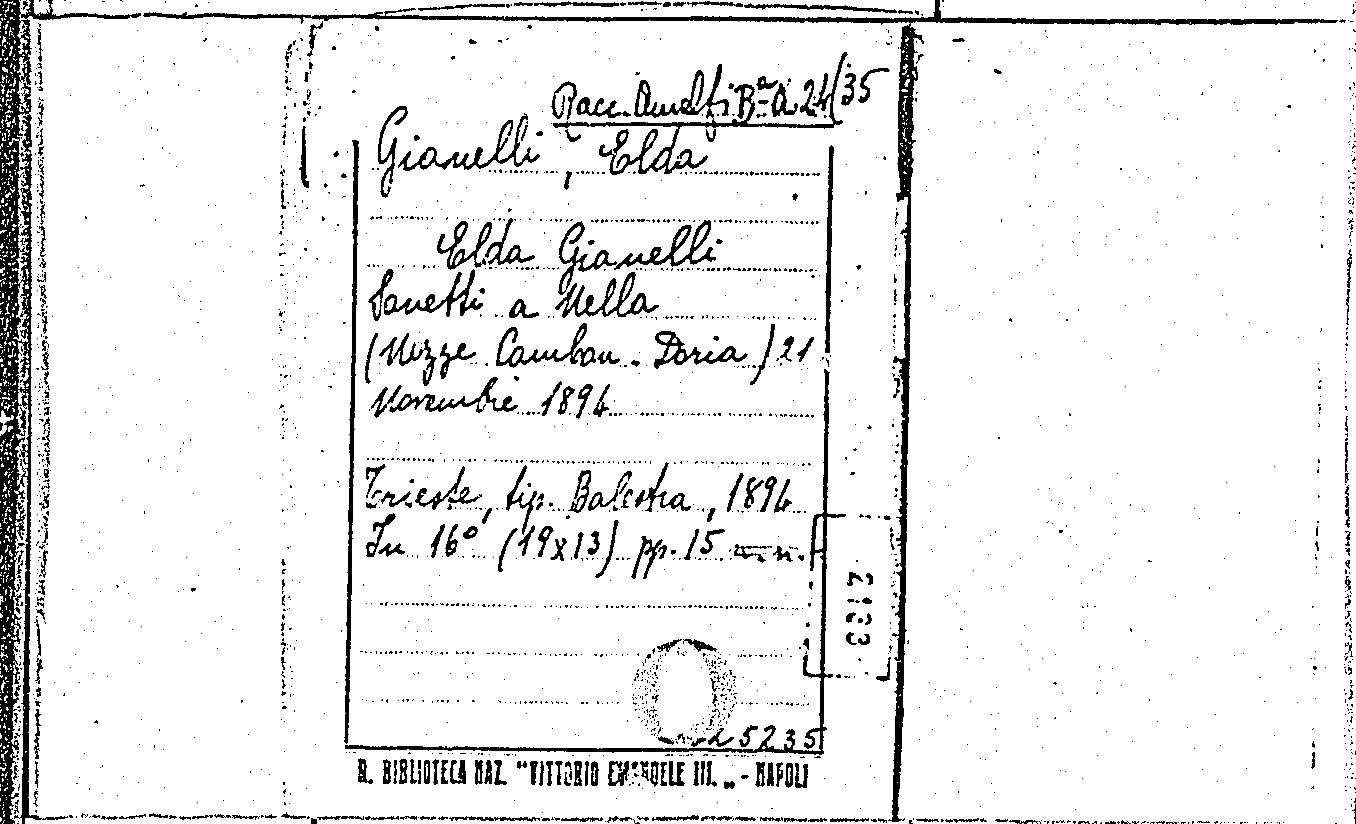 Racc. Amalfi Bª A 24/35
Gianelli, Elda
Elda Gianelli
Sonetti a Nella
(Nozze Cambon - Doria) 21
Novembre 1894
Trieste, tip. Balestra, 1894
In 16° (19x13) pp. 15
2133
5235
R. BIBLIOTECA NAZ. "VITTORIO EMANUELE III." - NAPOLI